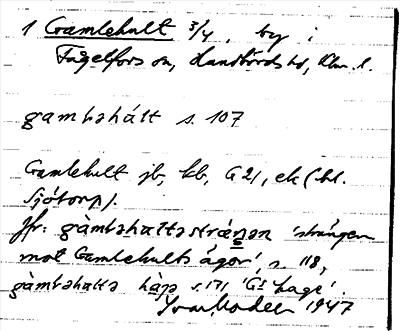 1 Gamlehult 3/4, by i
Fagelfors sn, Handbörds hd, Klm. l.
gambəhált s. 107
Gamlehult jb, kb, G 21, ek (bl.
Sjötorp).
Jfr: gàmbəhaltəstræŋən 'strängen
mot Gamlehults ägor', s. 118,
gàmbəhaltə hàgə s. 171, 'Gs hage'.
Ivar Modéer 1947